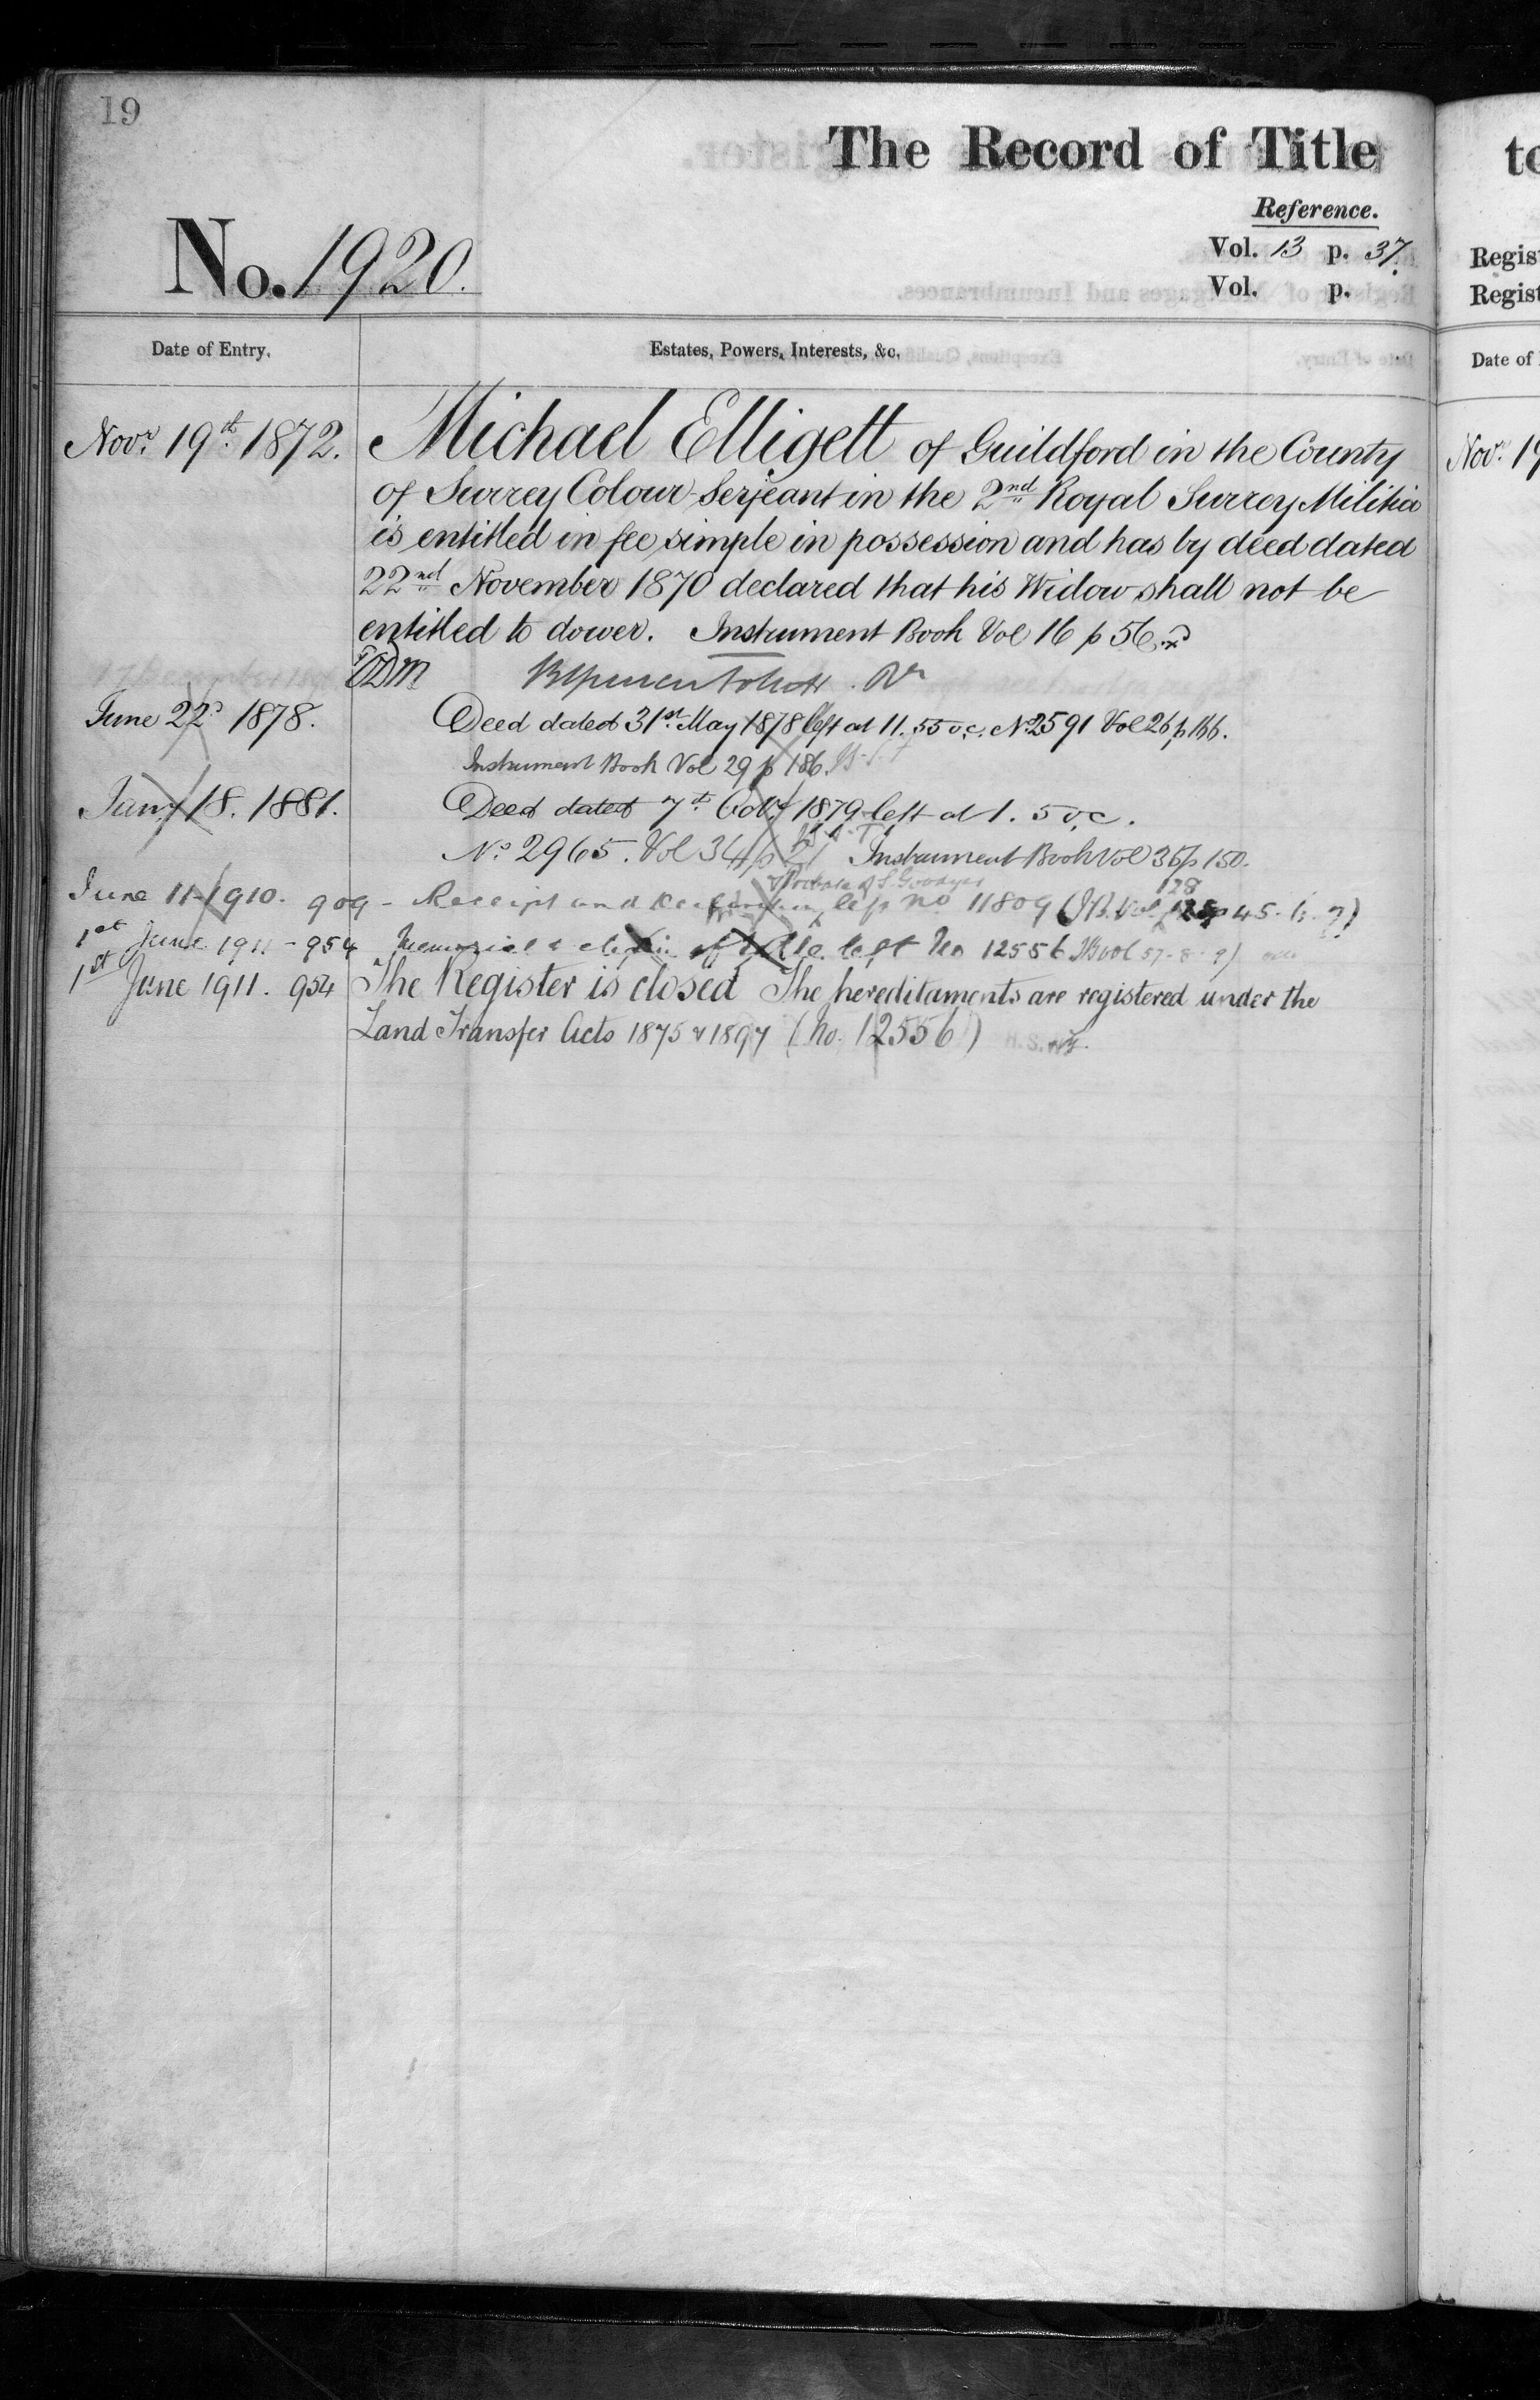 19
The Record of Title
Reference.
No. 1920.
Vol. 13 p. 37.
Vol. p.
Regis
Regist
Date of Entry.
Estates, Powers, Interests, &c.
Date of
Novr. 19th 1872.
Michael Elligett of Guildford in the County
of Surrey Colour Serjeant in the 2nd Royal Surrey Militia
is entitled in fee simple in possession and has by deed dated
22nd November 1870 declared that his Widow shall not be
entitled to dower. Instrument Book Vol 16 p 56.
June 22d 1878.
Deed dated 31st May 1878 left at 11.55 o,c. No 2591 Vol 26 p 166.
Instrument Book Vol 29 p 186.
Jany 18. 1881.
Deed dated 7th Octr 1879 left at 1.5 o,c.
No 2965. Vol 34 p 21 Instrument Book Vol 35 p 150.
& Probate of S. Goodyer
128
June 11 1910. 909 - Receipt and left no 11809 (I.B. Vol 125 p 45. 6. 7)
1st June 1911 - 954 Memorial & of title left No 12556 57-8-9)
1st June 1911. 954 The Register is closed The hereditaments are registered under the
Land Transfer Acts 1875 & 1897 (No. 12556)
Novr. 19